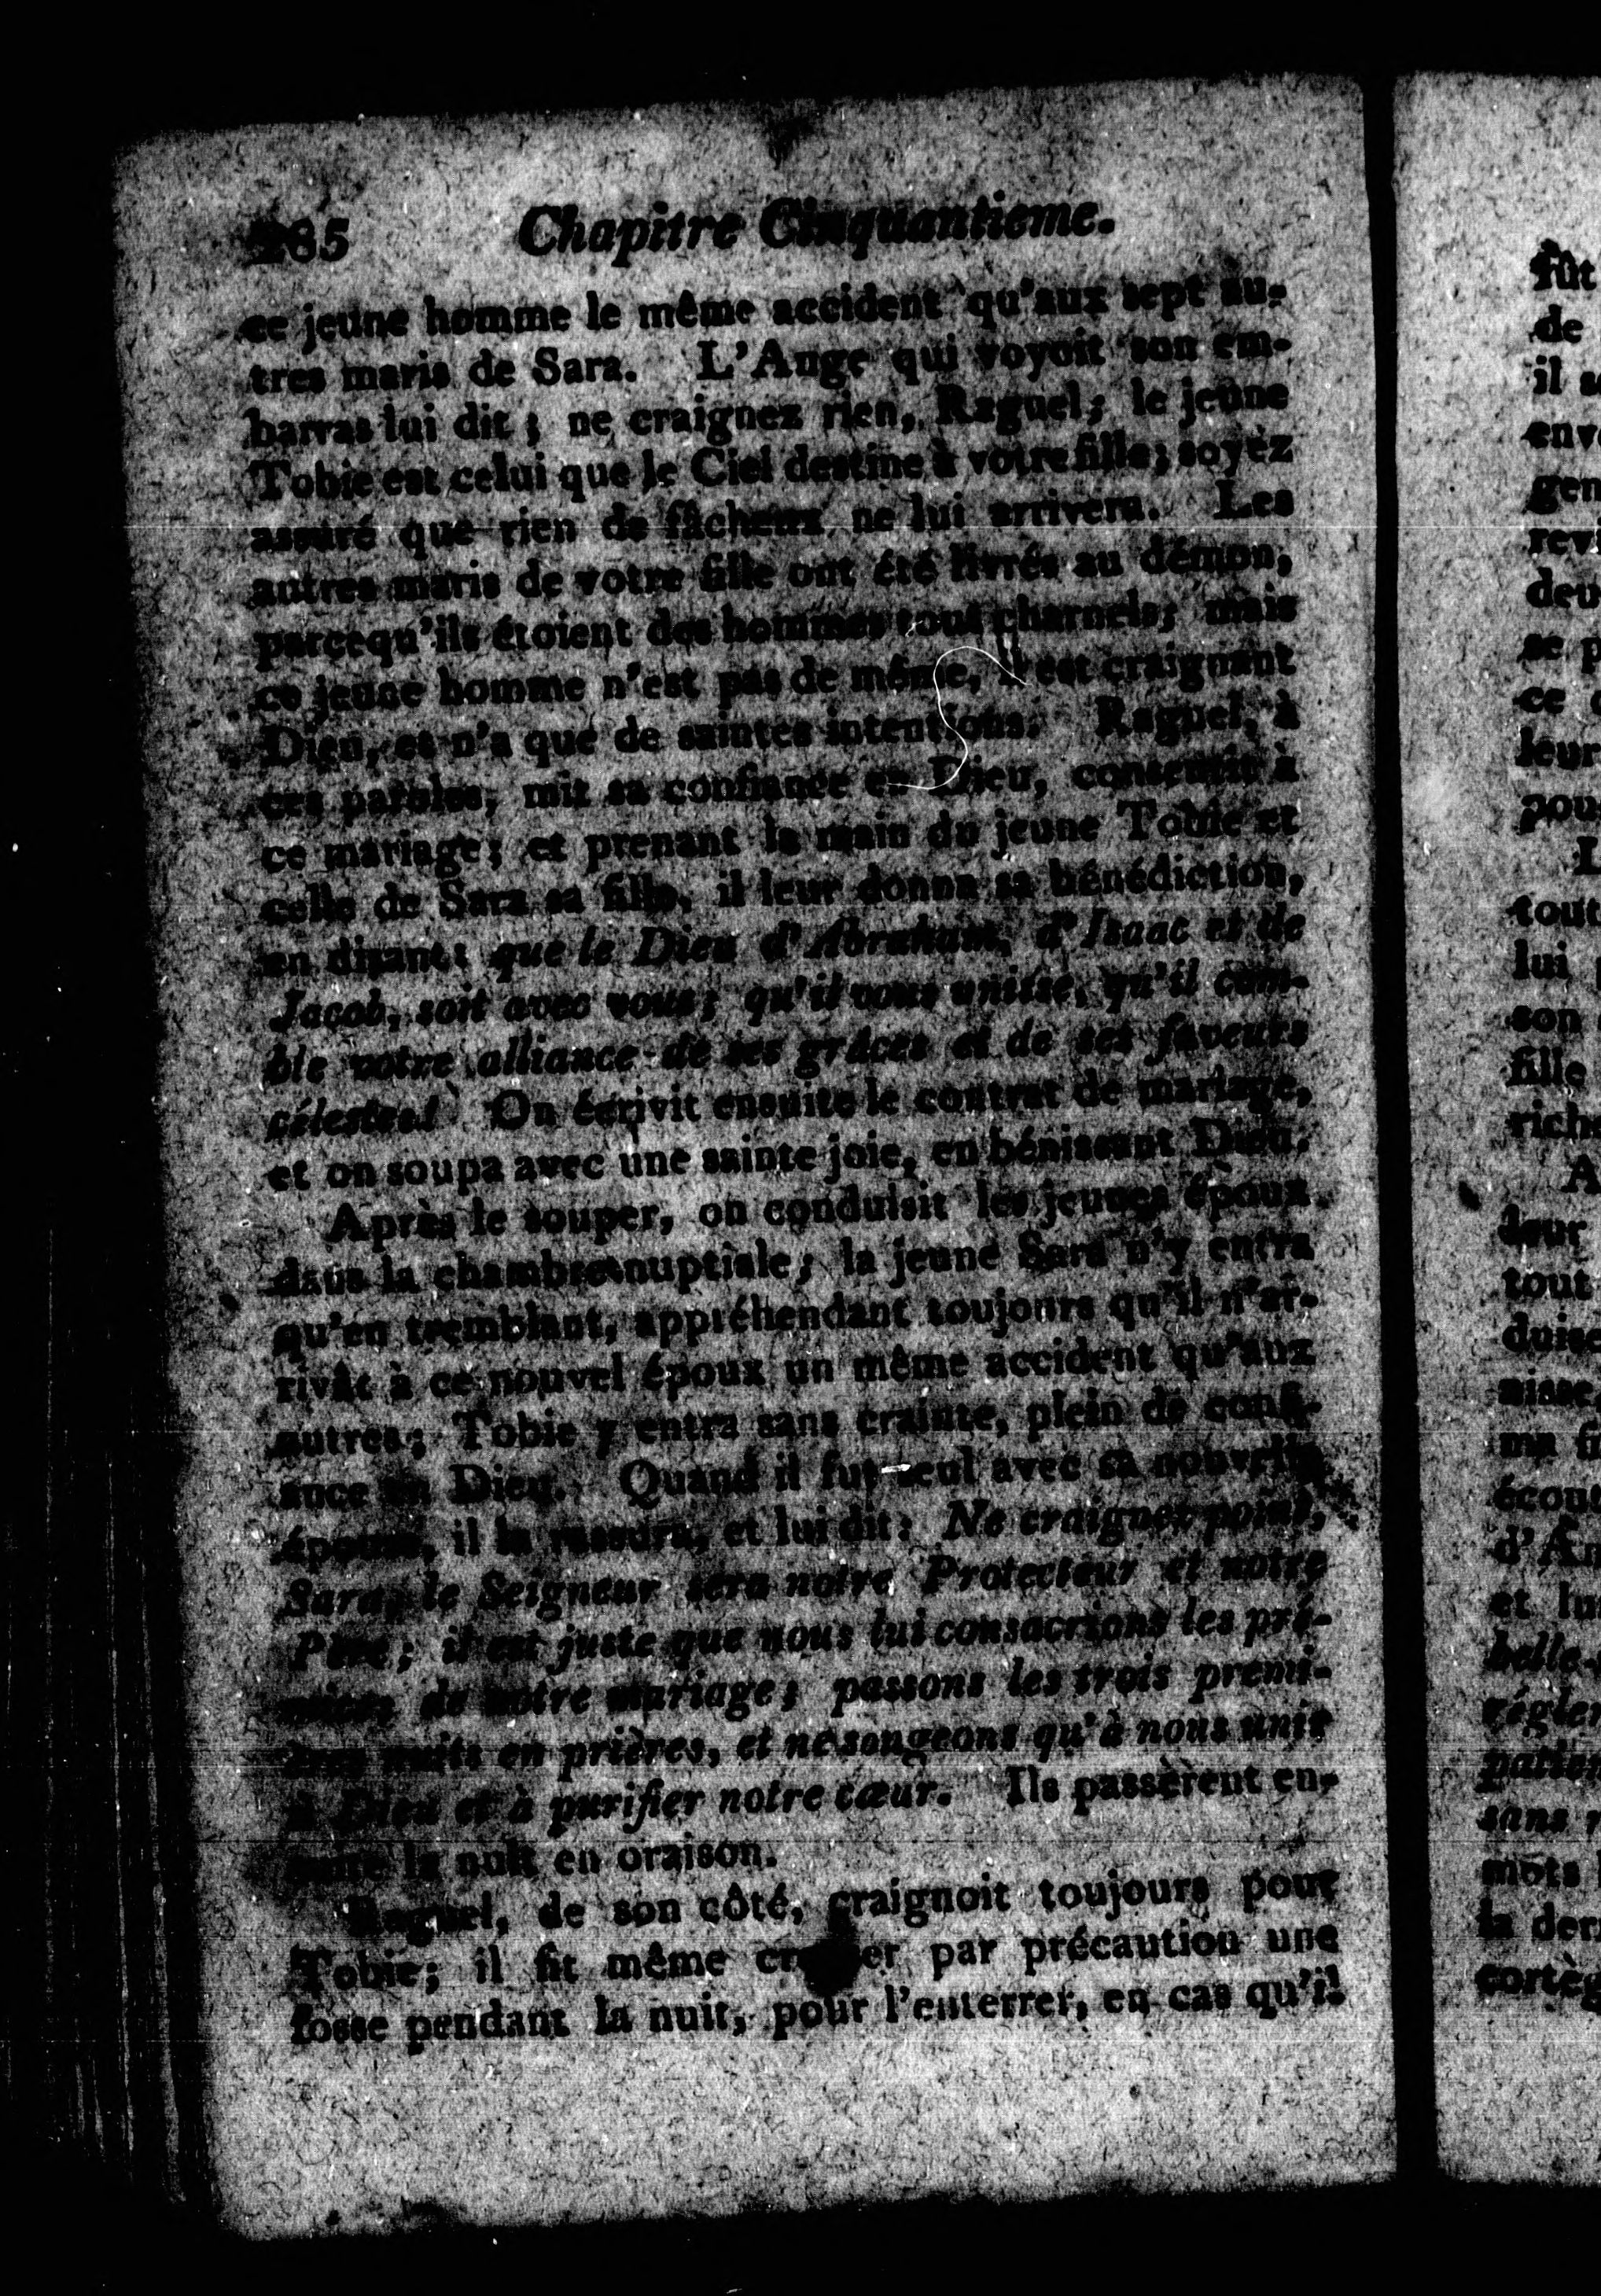 265 Chapitre Cinquantieme.
ce jeune homme le même accident qu'aux sept au-
tres maris de Sara. L'Ange qui voyoit son em-
barras lui dit ; ne craignez rien, Raguel ; le jeune
Tobie est celui que le Ciel destine à votre fille ; soyez
assuré que rien de fâcheux ne lui arrivera. Les
autres maris de votre fille ont été livrés au démon,
parcequ'ils étoient des hommes tout charnels ; mais
ce jeune homme n'est pas de même, il est craignant
Dieu, et n'a que de saintes intentions. Raguel, à
ces paroles, mit sa confiance en Dieu, consentit à
ce mariage ; et prenant la main du jeune Tobie et
celle de Sara sa fille, il leur donna sa bénédiction,
en disant : que le Dieu d'Abraham, d'Isaac et de
Jacob, soit avec vous ; qu'il vous unisse, qu'il com-
ble votre alliance de ses grâces et de ses faveurs
célestes! On écrivit ensuite le contrat de mariage,
et on soupa avec une sainte joie, en bénissant Dieu.
Après le souper, on conduisit les jeunes époux
dans la chambre nuptiale ; la jeune Sara n'y entra
qu'en tremblant, appréhendant toujours qu'il n'ar-
rivât à ce nouvel époux un même accident qu'aux
autres ; Tobie y entra sans crainte, plein de confi-
ance en Dieu. Quand il fut seul avec sa nouvelle
épouse, il la rassura, et lui dit : Ne craignez point,
Sara, le Seigneur sera notre Protecteur et notre
Père ; il est juste que nous lui consacrions les pré-
de notre mariage ; passons les trois premi-
ères nuits en prières, et ne songeons qu'à nous unir
à Dieu et à purifier notre cœur. Ils passèrent en-
la nuit en oraison.
Raguel, de son côté, craignoit toujours pour
Tobie ; il fit même creuser par précaution une
fosse pendant la nuit, pour l'enterrer, en cas qu'il
fût
de
il
gen
ce
leur
L
tout
lui
son
fille
A
leur
tout
ma
et
sans
mots
la